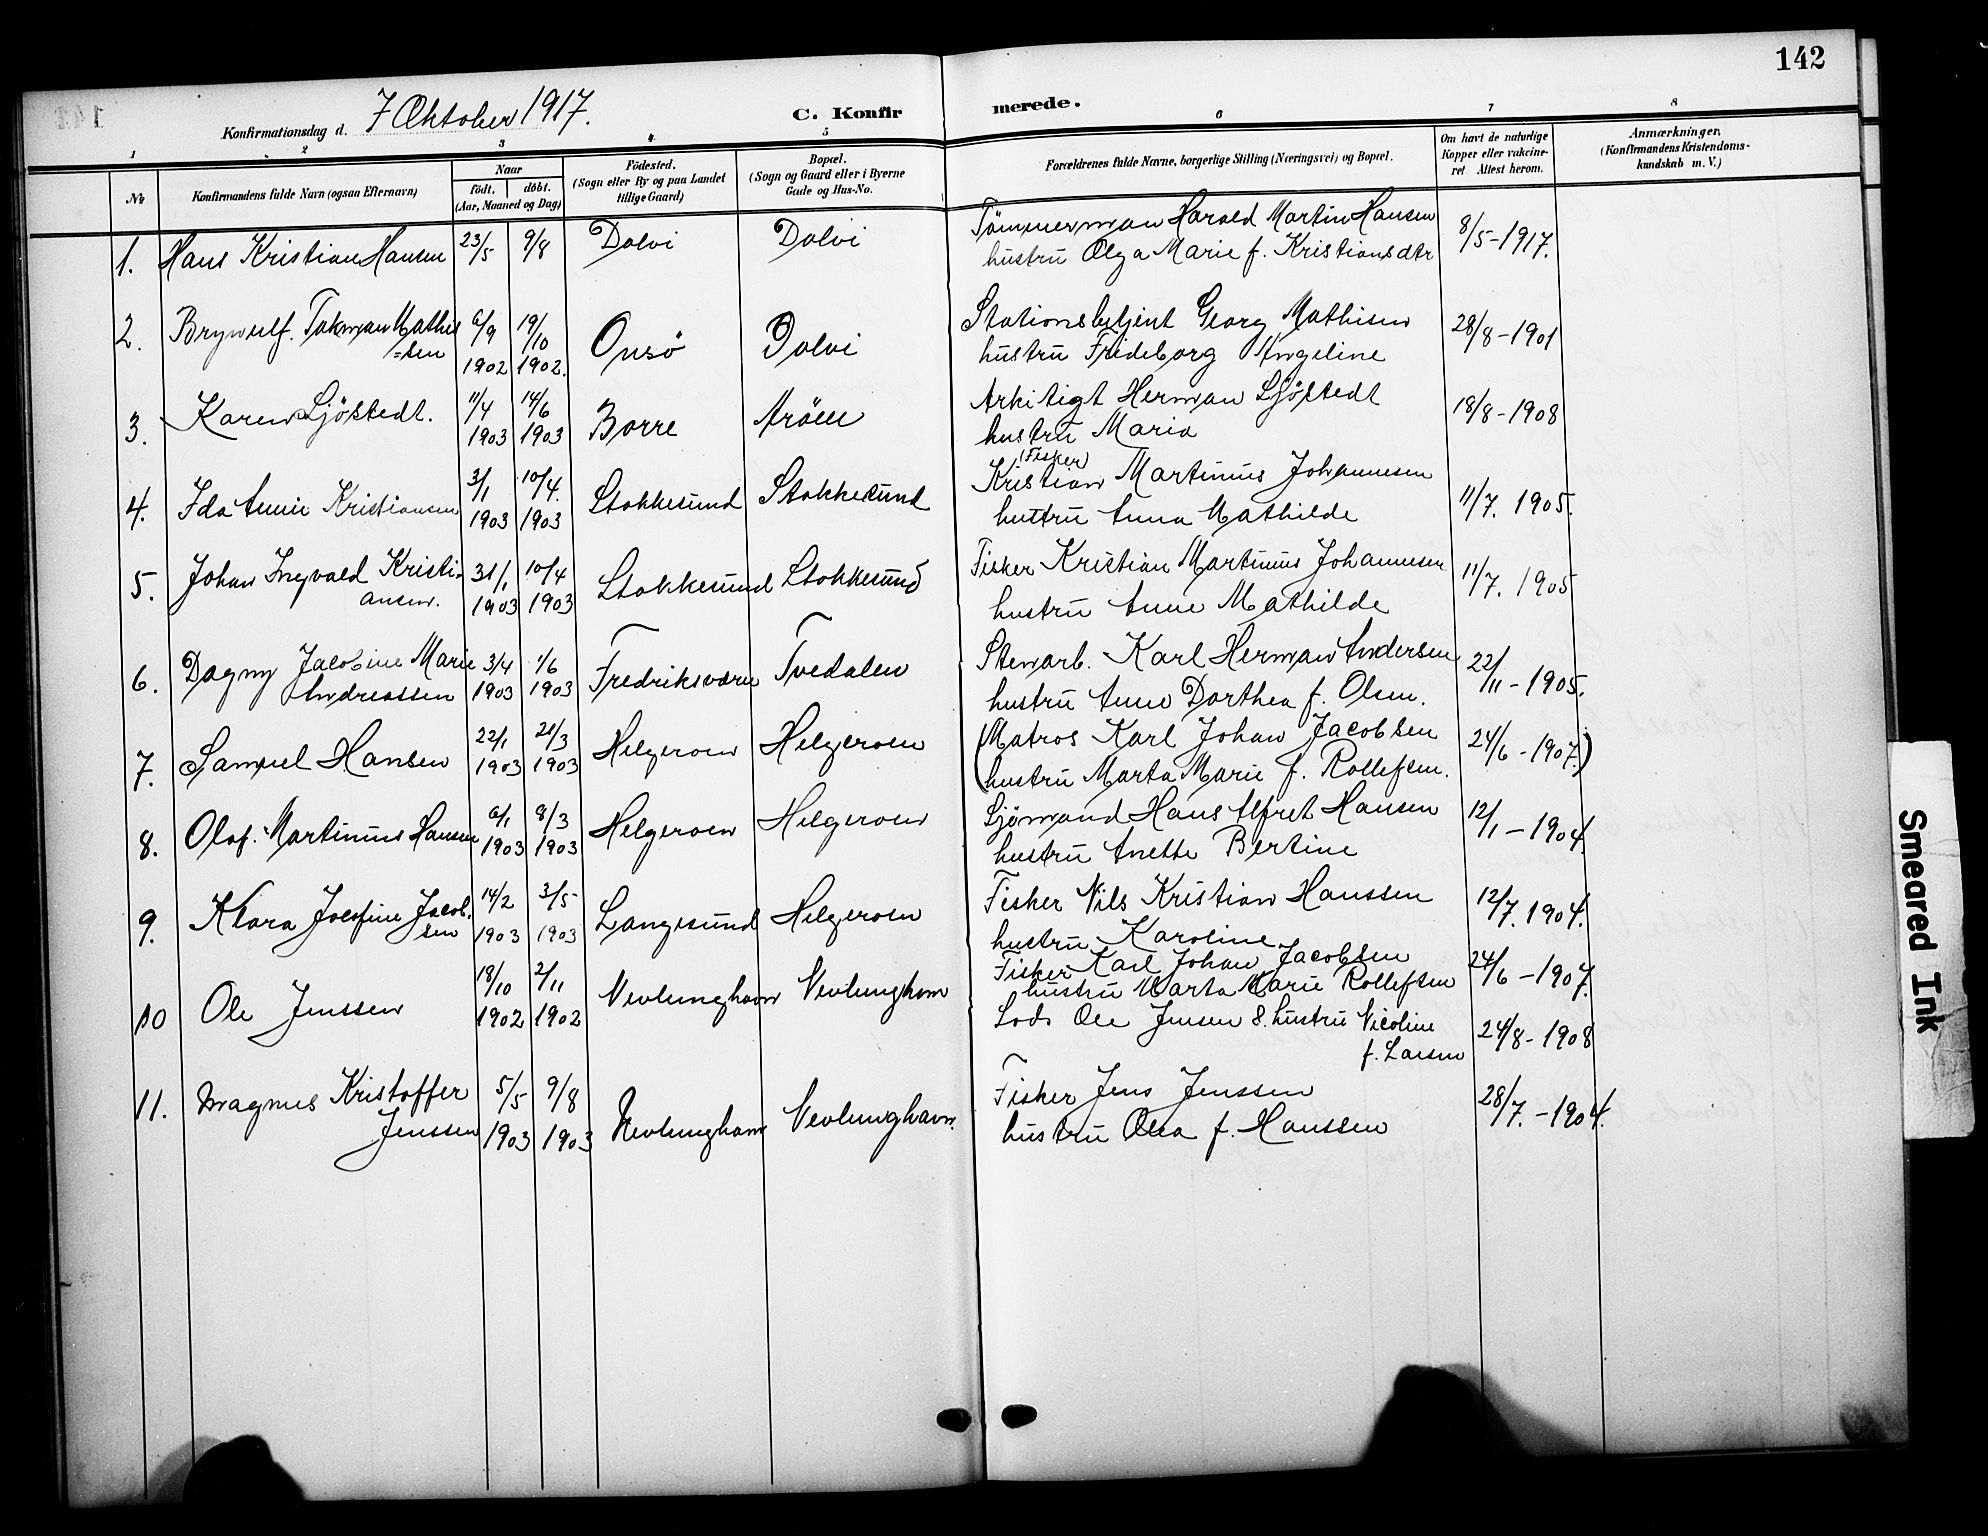 142
7 Oktober 1917.
Konfirmationsdag d.
C. Konfirmerede.
1 2 3 4 5 6 7 8
№
Konfirmandens fulde Navn (ogsaa Efternavn)
Naar
födt. döbt.
(Aar, Maaned og Dag)
Födested.
(Sogn eller By og paa Landet
tillige Gaard)
Bopæl.
(Sogn og Gaard eller i Byerne
Gade og Hus-No.
Forældrenes fulde Navne, borgerlige Stilling (Næringsvei) og Bopæl.
Om havt de naturlige
Kopper eller vakcine-
ret. Attest herom.
Anmærkninger.
(Konfirmandens Kristendoms-
kundskab m. V.)
1. Hans Kristian Hansen 23/5 9/8 Dolvi Dolvi Tömmerman Harald Martin Hansen 8/5-1917.
hustru Olga Marie f. Kristiansdtr
2. Brynulf. Takman Mathi 6/9 19/10 Onsö Dolvi Stationsbetjent Georg Mathisen 28/8-1901
=sen 1902 1902. hustru Frideborg Angeline
3. Karen Sjöstedt. 11/4 14/6 Borre Aröen Arkitigt Herman Sjöstedt 18/8-1908
1903 1903 hustru Maria
(Fisker)
4. Ida Annie Kristiansen 3/1 10/4. Stokkesund Stokkesund Kristian Martinus Johannesen 11/7. 1905.
1903 1903 hustru Anna Mathilde
5. Johan Ingvald Kristi- 31/1 10/4 Stokkesund Stokkesund Fisker Kristian Martinus Johannesen 11/7. 1905
ansen. 1903 1903 hustru Anne Mathilde
6. Dagny Jacobine Marie 3/4 1/6 Fredriksværn Tvedalen Stenarb. Karl Herman Andersen 22/11-1905.
Andreassen 1903 1903 hustru Anne Dorthea f. Olsen.
7. Samuel Hansen 22/1 21/3 Helgeroen Helgeroen (Matros Karl Johan Jacobsen 24/6-1907.)
1903 1903 (hustru Marta Marie f. Rollefsen.
8. Olaf. Martinius Hansen 6/1 8/3 Helgeroen Helgeroen Sjömand Hans Alfret Hansen 12/1-1904.
1903 1903 hustru Anette Bertine
9. Klara Josefine Jacob- 14/2 3/5 Langesund Helgeroen Fisker Nils Kristian Hanssen 12/7. 1904.
sen 1903 1903 hustru Karoline
Fisker Karl Johan Jacobsen 24/6-1907.
hustru Marta Marie Rollefsen
10 Ole Jenssen 18/10 2/11 Nevlunghavn Nevlunghavn
1902 1902 Lods Ole Jensen & hustru Nicoline 24/8-1908
f. Larsen
11. Magnus Kristoffer 5/5 9/8 Nevlunghavn Nevlunghavn. Fisker Jens Jenssen 28/7.-1904.
Jenssen 1903 1903 hustru Olea f. Hanssen
Smeared Ink